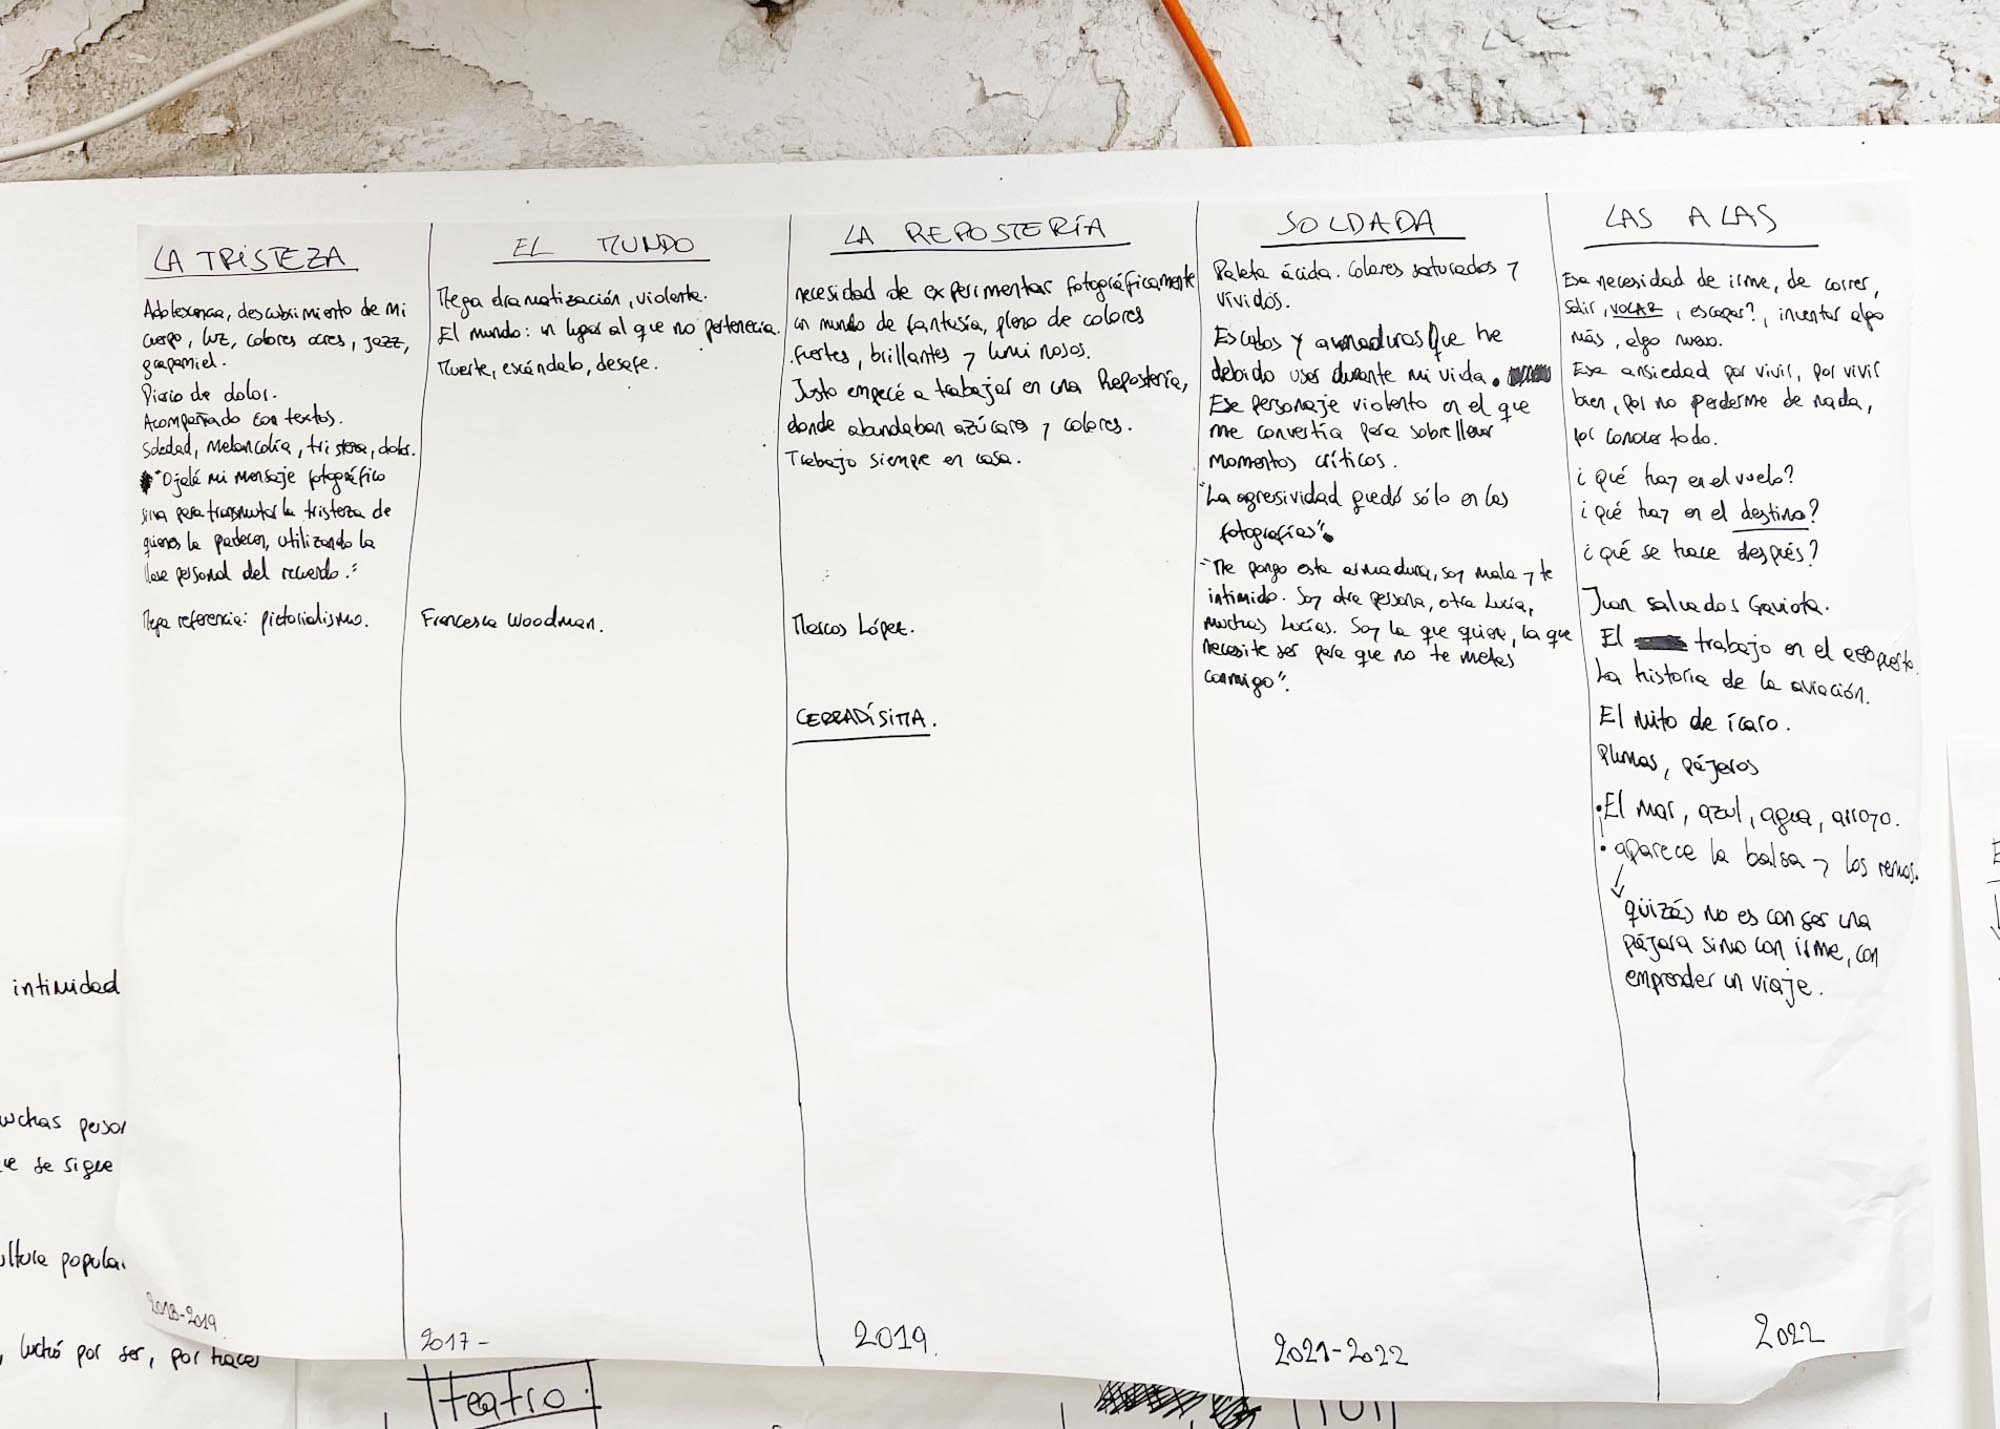 LA TRISTEZA
Adolescencia, descubrimiento de mi
cuerpo, luz, colores ocres, jazz,
grapamiel.
Diario de dolor.
Acompañado con textos.
Soledad, melancolía, tristeza, dolor.
"Ojalá mi mensaje fotográfico
sirva para transmutar la tristeza de
quienes la padecen, utilizando la
llave personal del recuerdo."
Mega referencia: pictorialismo.
2018-2019
EL MUNDO
Mega dramatización, violenta.
El mundo: un lugar al que no pertenecía.
Muerte, escándalo, desafe.
Francesca Woodman.
2017-
LA REPOSTERÍA
necesidad de experimentar fotográficamente
un mundo de fantasía, pleno de colores
fuertes, brillantes y luminosos.
Justo empecé a trabajar en una Repostería,
donde abundaban azúcares y colores.
Trabajo siempre en casa.
Marcos López.
CERRADÍSIMA.
2019.
SOLDADA
Paleta ácida. Colores saturados y
vívidos.
Escudos y armaduras que he
debido usar durante mi vida.
Ese personaje violento en el que
me convertía para sobrellevar
momentos críticos.
"La agresividad quedó sólo en las
fotografías".
"Me pongo esta armadura, soy mala y te
intimido. Soy otra persona, otra Lucía,
muchas Lucías. Soy la que quiera, la que
necesite ser para que no te metas
conmigo".
2021-2022
LAS ALAS
Esa necesidad de irme, de correr,
salir, VOLAR, escapar?, inventar algo
más, algo nuevo.
Esa ansiedad por vivir, por vivir
bien, por no perderme de nada,
por conocer todo.
¿Qué hay en el vuelo?
¿qué hay en el destino?
¿qué se hace después?
Juan Salvador Gaviota.
El trabajo en el aeropuerto.
La historia de la aviación.
El mito de ícaro.
Plumas, pájaros
• El mar, azul, agua, arroyo.
• aparece la balsa y los remos.
quizás no es con ser una
pájara sino con irme, con
emprender un viaje.
2022
intimidad
luchas person
ue se sigue
ultura popular
, luchó por ser, por hacer
teatro.